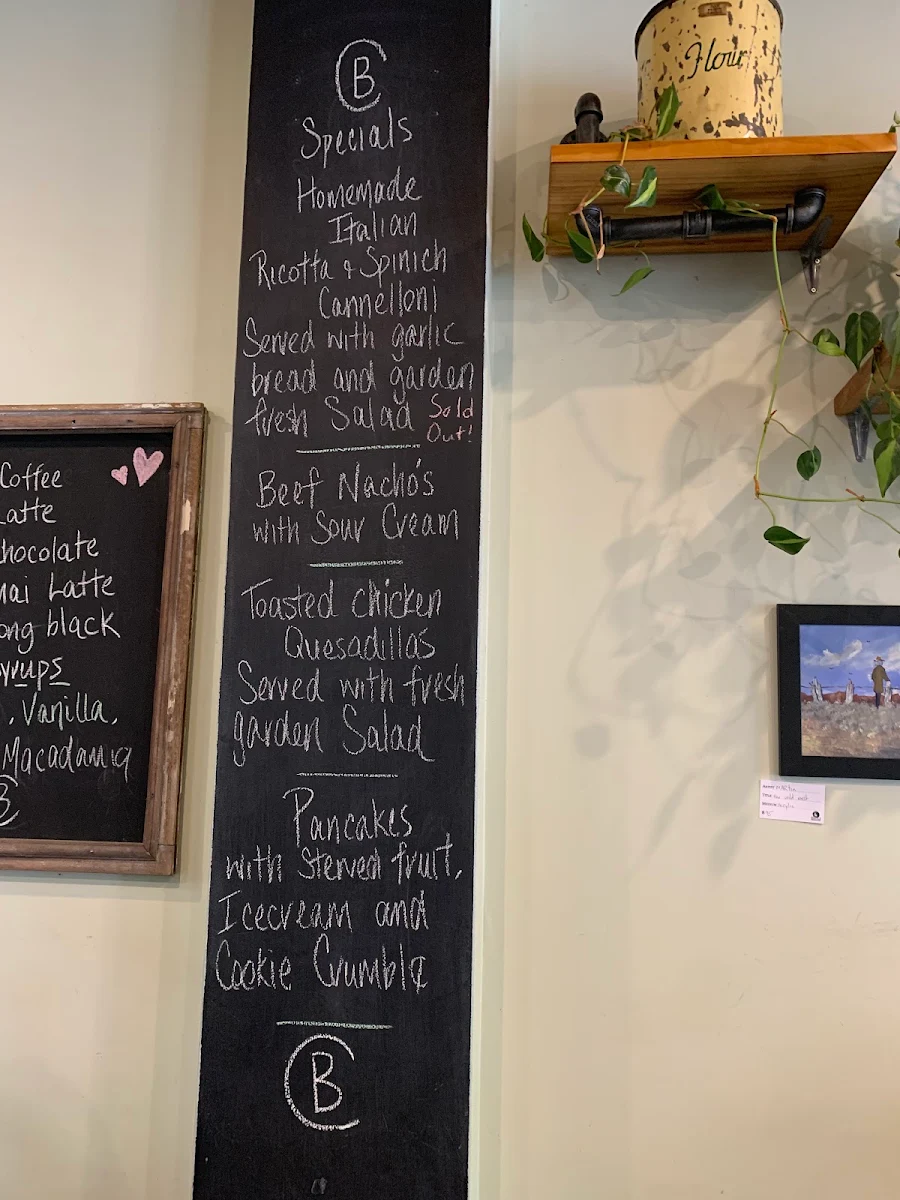 CB
Specials
Homemade
Italian
Ricotta & Spinich
Cannelloni
Served with garlic
bread and garden
fresh Salad Sold
Out!
Beef Nacho's
with Sour Cream
Toasted chicken
Quesadillas
Served with fresh
garden Salad
Pancakes
with Sterved fruit,
Icecream and
Cookie Crumble
CB
Coffee
Latte
hocolate
hai Latte
ong black
yrups
, Vanilla,
Macadamia
B
Flour